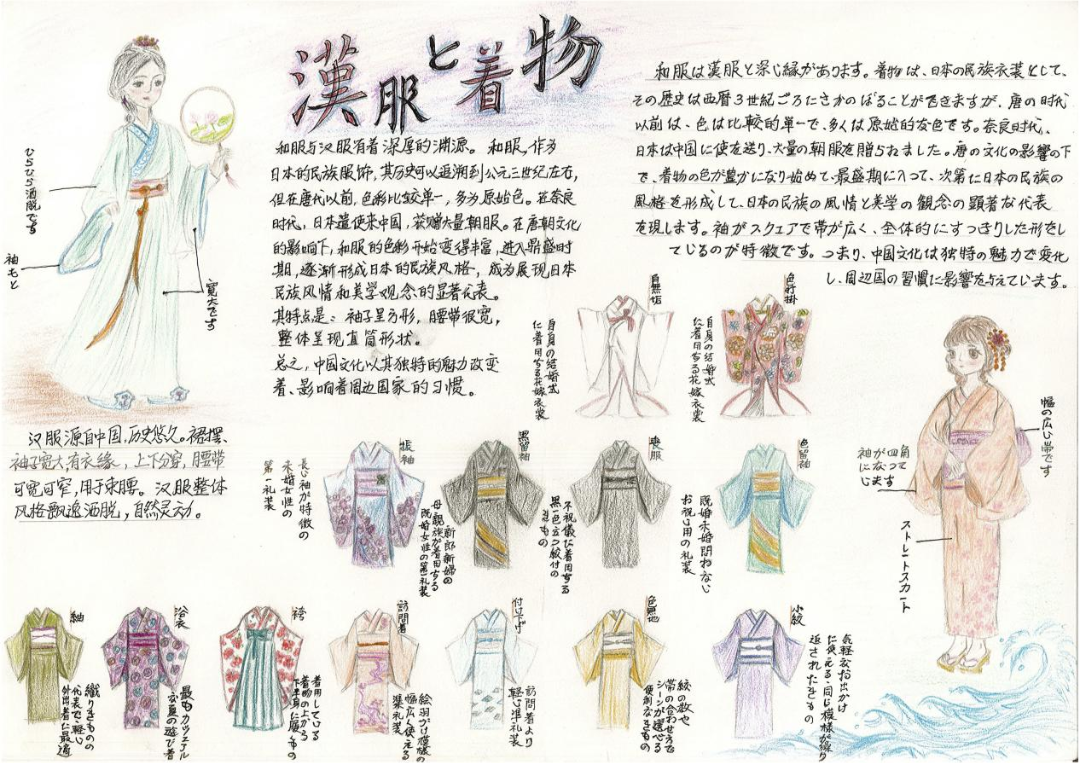 漢服と着物
和服与汉服有着深厚的渊源。和服,作为
日本的民族服饰,其历史可以追溯到公元三世纪左右,
但在唐代以前,色彩比较单一,多为原始色。在奈良
时代,日本遣使来中国,获赠大量朝服。在唐朝文化
的影响下,和服的色彩开始变得丰富,进入鼎盛时
期,逐渐形成日本的民族风格,成为展现日本
民族风情和美学观念的显著代表。
其特点是:袖子呈方形,腰带很宽,
整体呈现直筒形状。
总之,中国文化以其独特的魅力改变
着、影响着周边国家的习惯。
和服は漢服と深い縁があります。着物は、日本の民族衣装として、
その歴史は西暦3世紀ごろにさかのぼることができますが、唐の時代
以前は、色は比較的単一で、多くは原始的な色です。奈良時代、
日本は中国に使を送り、大量の朝服を贈られました。唐の文化の影響の下
で、着物の色が豊かになり始めて、最盛期に入って、次第に日本の民族の
風格を形成して、日本の民族の風情と美学の観念の顕著な代表
を現します。袖がスクェアで帯が広く、全体的にすっきりした形をし
ているのが特徴です。つまり、中国文化は独特の魅力で変化
し、周辺国の習慣に影響を与えています。
ひらひら洒脱です
袖もと
寛大です
汉服源自中国,历史悠久。裙摆、
袖子宽大,有衣缘,上下分穿,腰带
可宽可窄,用于束腰。汉服整体
风格飘逸洒脱,自然灵动。
白無垢
自身の結婚式
に着用する花嫁衣装
色打掛
自身の結婚式
に着用する花嫁衣装
振袖
長い袖が特徴の
未婚女性の
第一礼装
黒留袖
新郎新婦の
母親族が着用する
既婚女性の第一礼装
喪服
不祝儀に着用する
黒一色五つ紋付の
きもの
色留袖
既婚未婚問わない
お祝い用の礼装
幅の広い帯です
四角
がなって
袖にじます
ストレートスカート
紬
織りきものの
代表で、軽い
外出着に最適
浴衣
最もカジュアル
な夏の遊び着
袴
着用している
着物の上から
下半身に履くもの
訪問着
絵羽がけ模様の
幅広く使える
準礼装
付け下げ
訪問着より
軽い準礼装
色無地
紋の数や
帯の合わせ方で
シーンが選べる
便利なきもの
小紋
気軽なお出かけ
に使える、同じ模様が繰り
返されたきもの